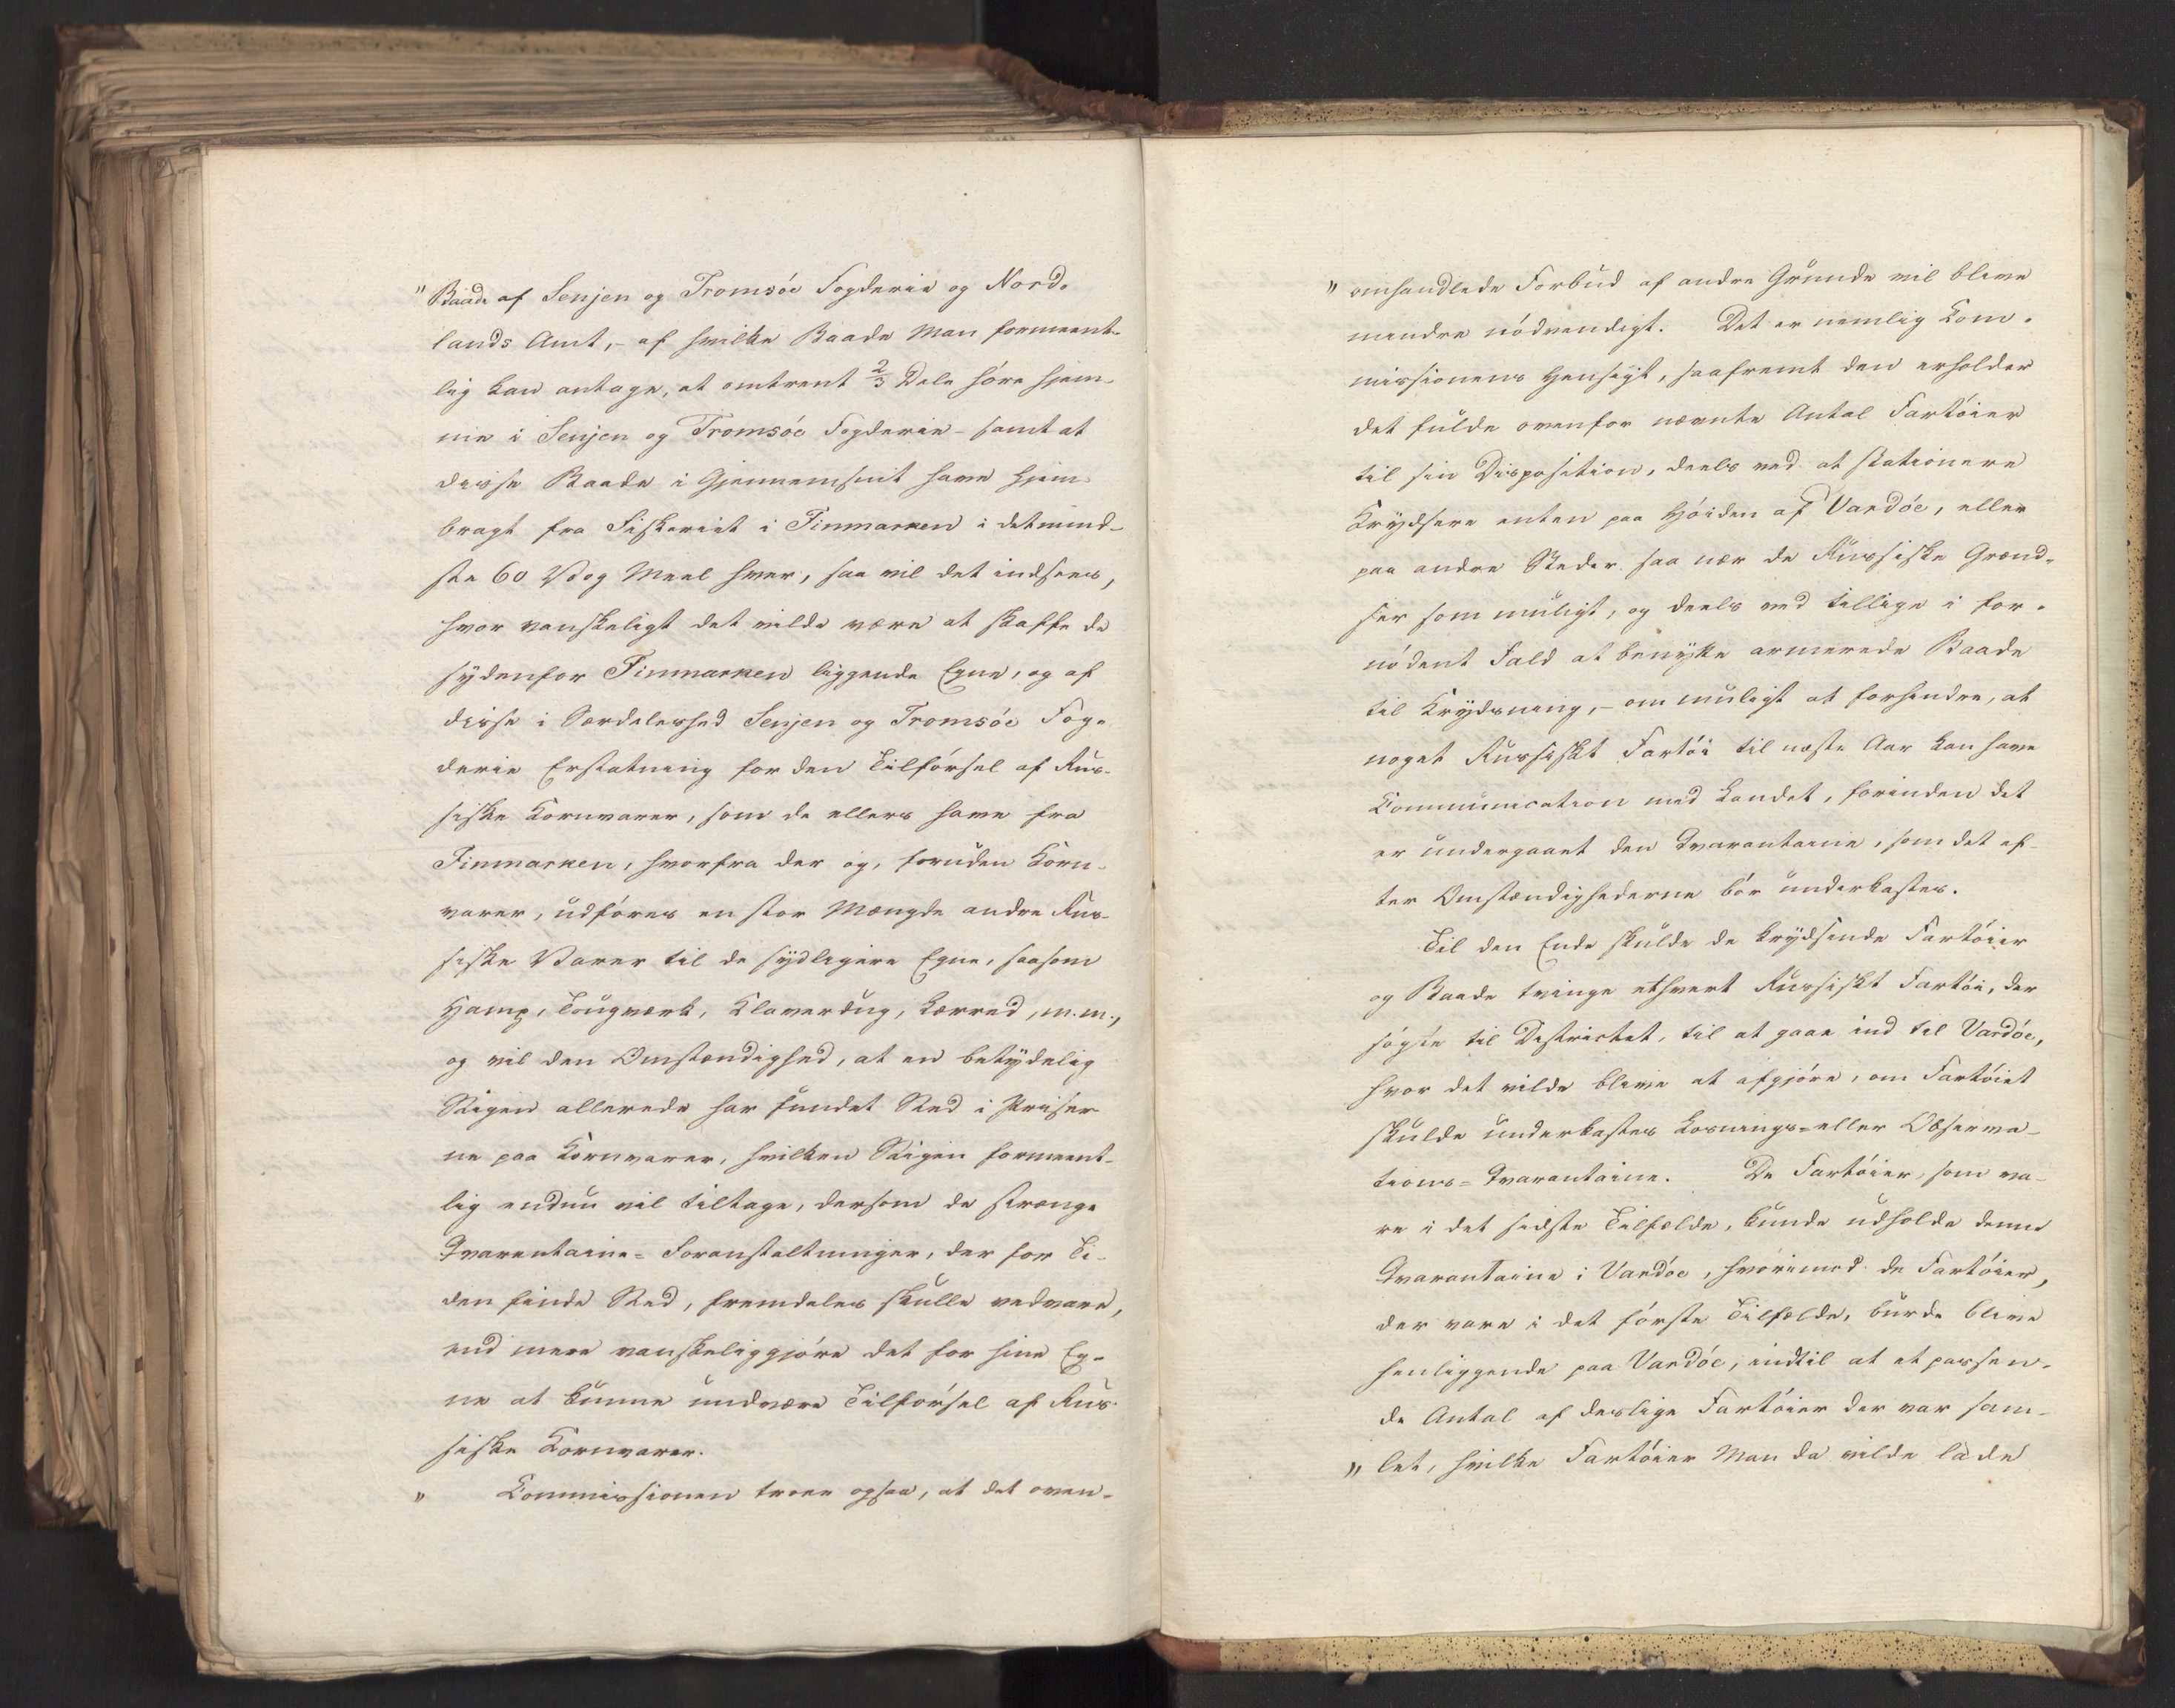 " Baade af Senjen og Tromsöe Fogderie og Nord-
lands Amt, - af hvilke Baade Man formeent-
lig kan antage, at omtrent 2/3 Dele höre hjem-
me i Senjen og Tromsöe Fogderie - samt at
disse Baade i Gjennemsnit have hjem-
bragt fra Fiskeriet i Finmarken i det mind-
ste 60 Vog Meel hver, saa vil det indsees,
hvor vanskeligt det vilde være at skaffe de
sydenfor Finmarken liggende Egne, og af
disse i Særdeleshed Senjen og Tromsöe Fog-
derie Erstatning for den Tilförsel af Rus-
siske Kornvarer, som de ellers have fra
Finmarken, hvorfra der og, foruden Korn-
varer, udföres en stor Mængde andre Rus-
siske Varer til de sydligere Egne, saasom
Hamp, Tougværk, Klaverdug, Lærred, m. m.,
og vil den Omstændighed, at en betydelig
Stigen allerede har fundet Sted i Priser-
ne paa Kornvarer, hvilken Stigen formeent-
lig endnu vil tiltage, dersom de strænge
Qvarantaine-Foranstaltninger, der for Ti-
den finde Sted, fremdeles skulle vedvare,
end mere vanskeliggjöre det for hine Eg-
ne at kunne undvære Tilförsel af Rus-
siske Kornvarer.
" Commissionen troer ogsaa, at det oven-
" omhandlede Forbud af andre Grunde vil blive
mindre nödvendigt. Det er nemlig Com-
missionens Hensigt, saafremt den erholder
det fulde ovenfor nævnte Antal Fartöier
til sin Disposition, deels ved at stationere
Krydsere enten paa Höiden af Vardöe, eller
paa andre Steder saa nær de Russiske Grænd-
ser som muligt, og deels ved tillige i for-
nödent Fald at benytte armerede Baade
til Krydsning, - om muligt at forhindre, at
noget Russiskt Fartöi til næste Aar kan have
Communication med Landet, forinden det
er undergaaet den Qvarantaine, som det ef-
ter Omstændighederne bör underkastes.
Til den Ende skulde de krydsende Fartöier
og Baade tvinge ethvert Russiskt Fartöi, der
sögte til Districtet, til at gaae ind til Vardöe,
hvor det vilde blive at afgjöre, om Fartöiet
skulde underkastes Losnings- eller Observa-
tions-Qvarantaine. De Fartöier, som va-
re i det sidste Tilfælde, kunde udholde denne
Qvarantaine i Vardöe, hvorimod de Fartöier,
der vare i det förste Tilfælde, burde blive
henliggende paa Vardöe, indtil at et passen-
de Antal af deslige Fartöier der var sam-
" let, hvilke Fartöier Man da vilde lade